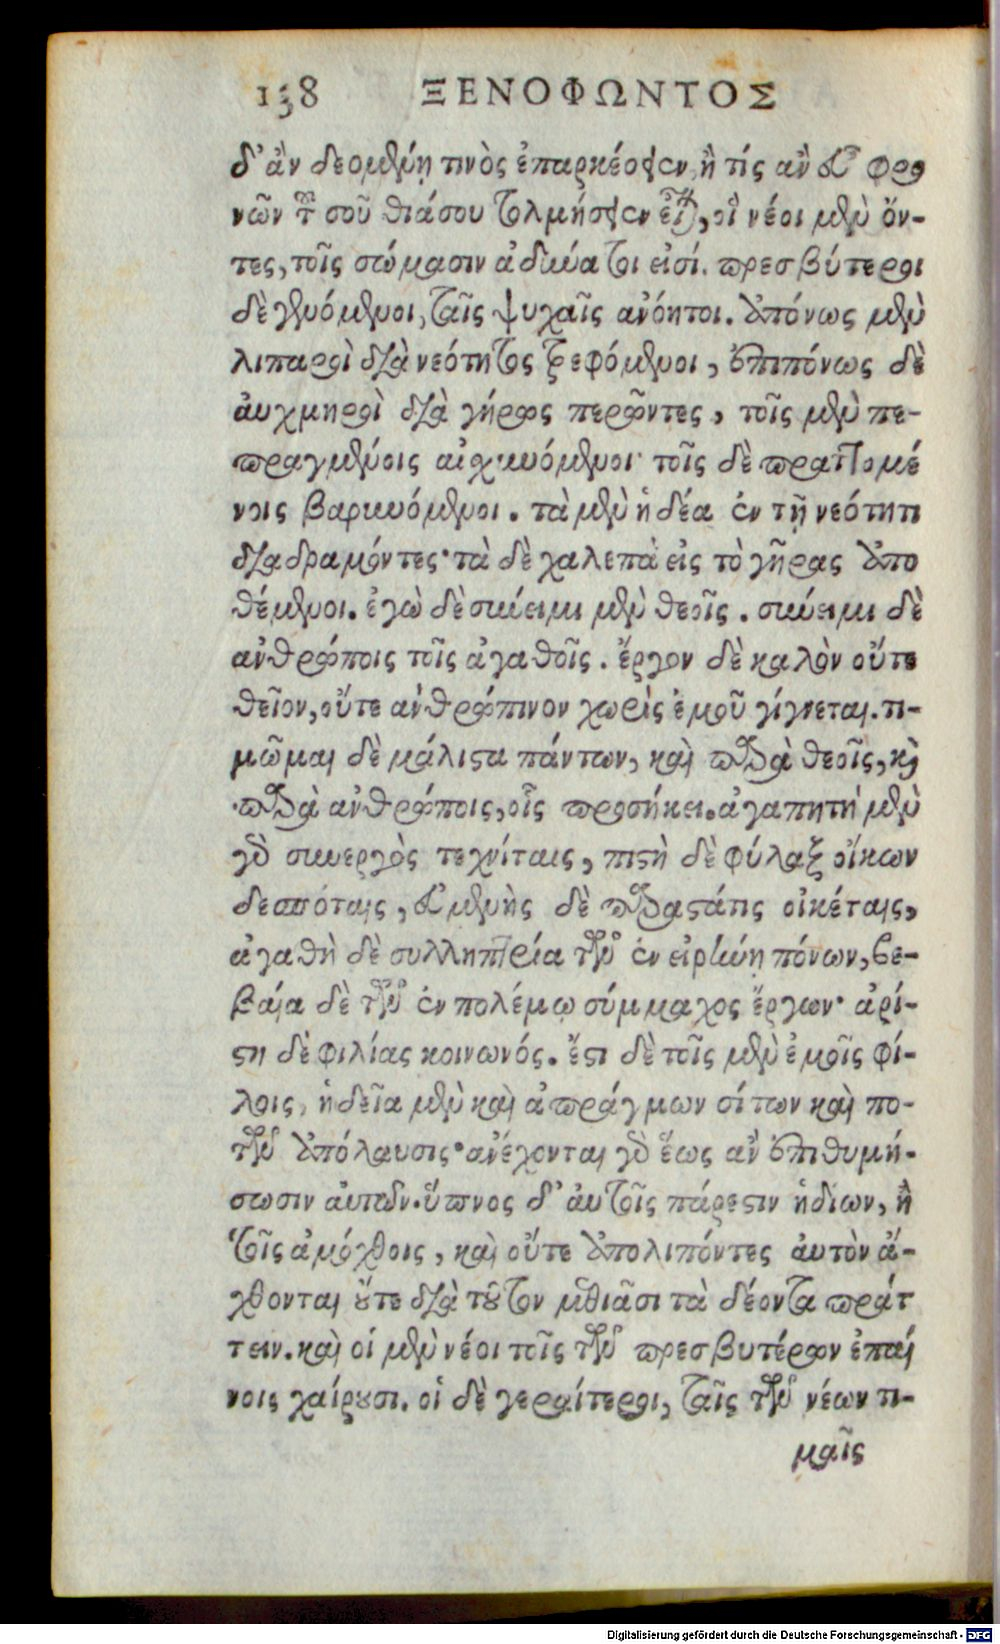 138 ΞΕΝΟΦΩΝΤΟΣ
δ᾽ ἂν δεομένῃ τινὸς ἐπαρκέσειεν, ἢ τίς ἂν εὖ φρο
νῶν τοῦ σοῦ θιάσου τολμήσειεν εἶναι, οἳ νέοι μὲν ὄν-
τες, τοῖς σώμασιν ἀδύνατοι εἰσί. πρεσβύτεροι
δὲ γενόμενοι, ταῖς ψυχαῖς ἀνόητοι. ἀπόνως μὲν
λιπαροὶ διὰ νεότητος τρεφόμενοι, ἐπιπόνως δὲ
αὐχμηροὶ διὰ γήρως περῶντες, τοῖς μὲν πε-
πραγμένοις αἰσχυνόμενοι· τοῖς δὲ πραττομέ
νοις βαρυνόμενοι. τὰ μὲν ἡδέα ἐν τῇ νεότητι
διαδραμόντες· τὰ δὲ χαλεπὰ εἰς τὸ γῆρας ἀπο
θέμενοι. ἐγὼ δὲ σύνειμι μὲν θεοῖς. σύνειμι δὲ
ἀνθρώποις τοῖς ἀγαθοῖς. ἔργον δὲ καλὸν οὔτε
θεῖον, οὔτε ἀνθρώπινον χωρὶς ἐμοῦ γίγνεται. τι-
μῶμαι δὲ μάλιστα πάντων, καὶ παρὰ θεοῖς, καὶ
παρὰ ἀνθρώποις, οἷς προσήκει. ἀγαπητὴ μὲν
γὰρ συνεργὸς τεχνίταις, πιστὴ δὲ φύλαξ οἴκων
δεσπόταις, εὐμενὴς δὲ παραστάτις οἰκέταις,
ἀγαθὴ δὲ συλλήπτρια τῶν ἐν εἰρήνῃ πόνων, βε-
βαία δὲ τῶν ἐν πολέμῳ σύμμαχος ἔργων· ἀρί-
στη δὲ φιλίας κοινωνός. ἔστι δὲ τοῖς μὲν ἐμοῖς φί-
λοις, ἡδεῖα μὲν καὶ ἀπράγμων σίτων καὶ πο-
τῶν ἀπόλαυσις· ἀνέχονται γὰρ ἕως ἂν ἐπιθυμή-
σωσιν αὐτῶν. ὕπνος δ᾽ αὐτοῖς πάρεστιν ἡδίων, ἢ
τοῖς ἀμόχθοις, καὶ οὔτε ἀπολιπόντες αὐτὸν ἄ-
χθονται οὔτε διὰ τοῦτον μεθιᾶσι τὰ δέοντα πράτ
τειν. καὶ οἱ μὲν νέοι τοῖς τῶν πρεσβυτέρων ἐπαί
νοις χαίρουσι. οἱ δὲ γεραίτεροι, ταῖς τῶν νέων τι-
μαῖς
Digitalisierung gefördert durch die Deutsche Forschungsgemeinschaft - DFG